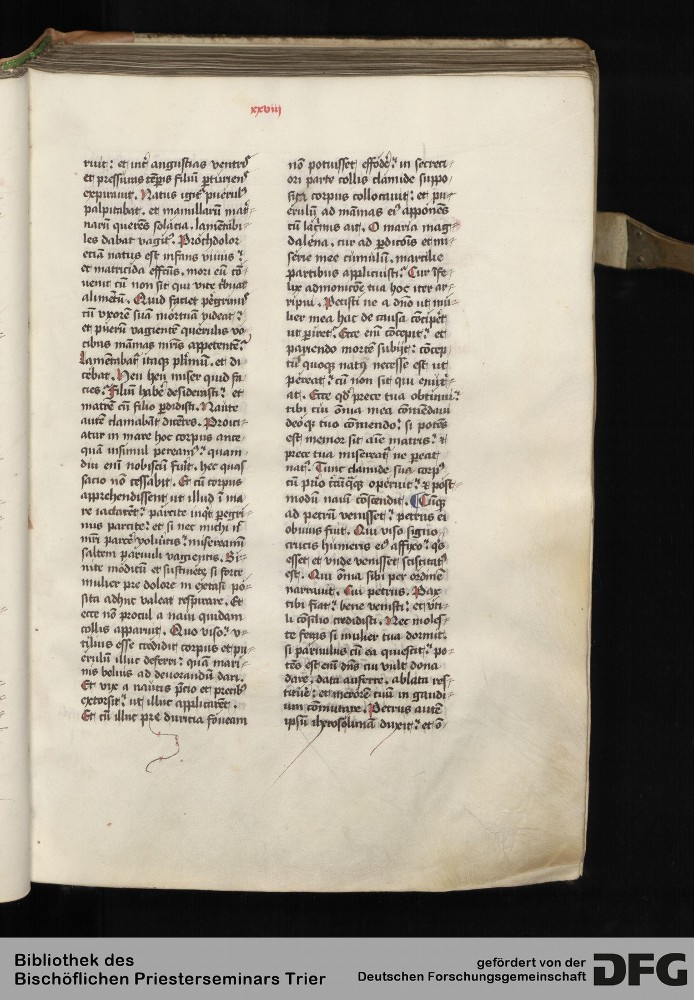 xxviii
ruit: et int̄ angustias ventrꝭ
et pressuras tēpis filiū p̲turiens
expirauit. Natus igit᷑ puerulꝰ
palpitabat. et mamillarū mat̄-
narū querēs solatia. lamētabi-
les dabat vagitꝰ. Prohdolor
eciā natus est infans viuus:
et matricida effcūs. mori eū cō-
uenit cū non sit qui vite t̄buat
alimētū. Quid faciet pegrinꝰ
cū vxorē suā mortuā videat:
et puerū vagientē querulis vo-
cibus māmas mrīs appetentē:
Lamentabat᷑ itaqꝫ plīmū. et di-
cebat. Heu heu miser quid fa-
cies: Filiū habē desiderasti: et
matrē cū filio p̲didisti. Naute
autē clamabāt dicētes. Proici-
atur in mare hoc corpus ante
quā insimul peream᷒: quam-
diu enī nobiscū fuīt. hec quas-
sacio nō cessabit. Et cū corpus
apprehendissent ut illud ī ma-
re iactarēt: parcite inqͭ pegri-
nus parcite: et si nec michi nec
mrī parcē volueritis: misereamī
saltem paruuli vagientis. Si-
nite modicū et sustinete si forte
mulier pre dolore in extasi po-
sita adhuc valeat respirare. Et
ecce nō procul a naui quidam
collis apparuit. Quo viso: v-
tilius esse credidit corpus et pu-
erulū illuc deferri: quā mari-
nis beluis ad deuorandū dari.
Et vix a nautis pc̄io et precibꝰ
extorsit: ut illuc applicarēt.
Et cū illuc pre duricia foueam
nō potuisset effodē: in secreti-
ori parte collis clamide suppo-
sita corpus collocauit: et pu-
erulū ad māmas eiꝰ apponēs
cū lac̄mis ait. O maria mag-
dalena. cur ad p̲dicōis et mi-
serie mee cumulū. marcilie
partibus applicuisti: Cur īfe-
lix admonicōe tua hoc iter ar-
ripui. Petisti ne a dn̄o ut mu-
lier mea hac de causa cōcipēt
ut p̲iret: Ecce enī cōcepit: et
pariendo mortē subijt: concep-
tuqꝫ quoqꝫ natꝰ necesse est ut
pereat: cū non sit qui enut̄-
at. Ecce qd̄ prece tua obtinui:
tibi cui ōnia mea cōmēdaui
deoqꝫ tuo cōmendo: si potēs
est memor sit aīe matris: ⁊
prece tua misereat᷑ ne pereat
natꝰ. Tunc clamide sua corpꝰ
cū puo operuit: ⁊ post-
modū nauī cōscendit. Cūqꝫ
ad petrū venisset: petrus ei
obuius fuit. Qui viso signo
crucis humeris eiꝰ affixo: qs
esset et vnde venisset sciscitatꝰ
est. Qui ōnia sibi per ordinē
narrauit. Cui petrus. Pax
tibi fiat: bene venisti: et vti-
li cōsilio credidisti. Nec moles-
te feras si mulier tua dormit.
si paruulus cū ea quiescit: po-
tēs est enī dn̄s cui vult dona
dare. data auferre. ablata res-
titue: et merorē tuū in gaudi-
um cōmutare. Petrus autē
ipsū iherosolimā duxit: et ō-
Bibliothek des
Bischöflichen Priesterseminars Trier
gefördert von der
Deutschen Forschungsgemeinschaft
DFG